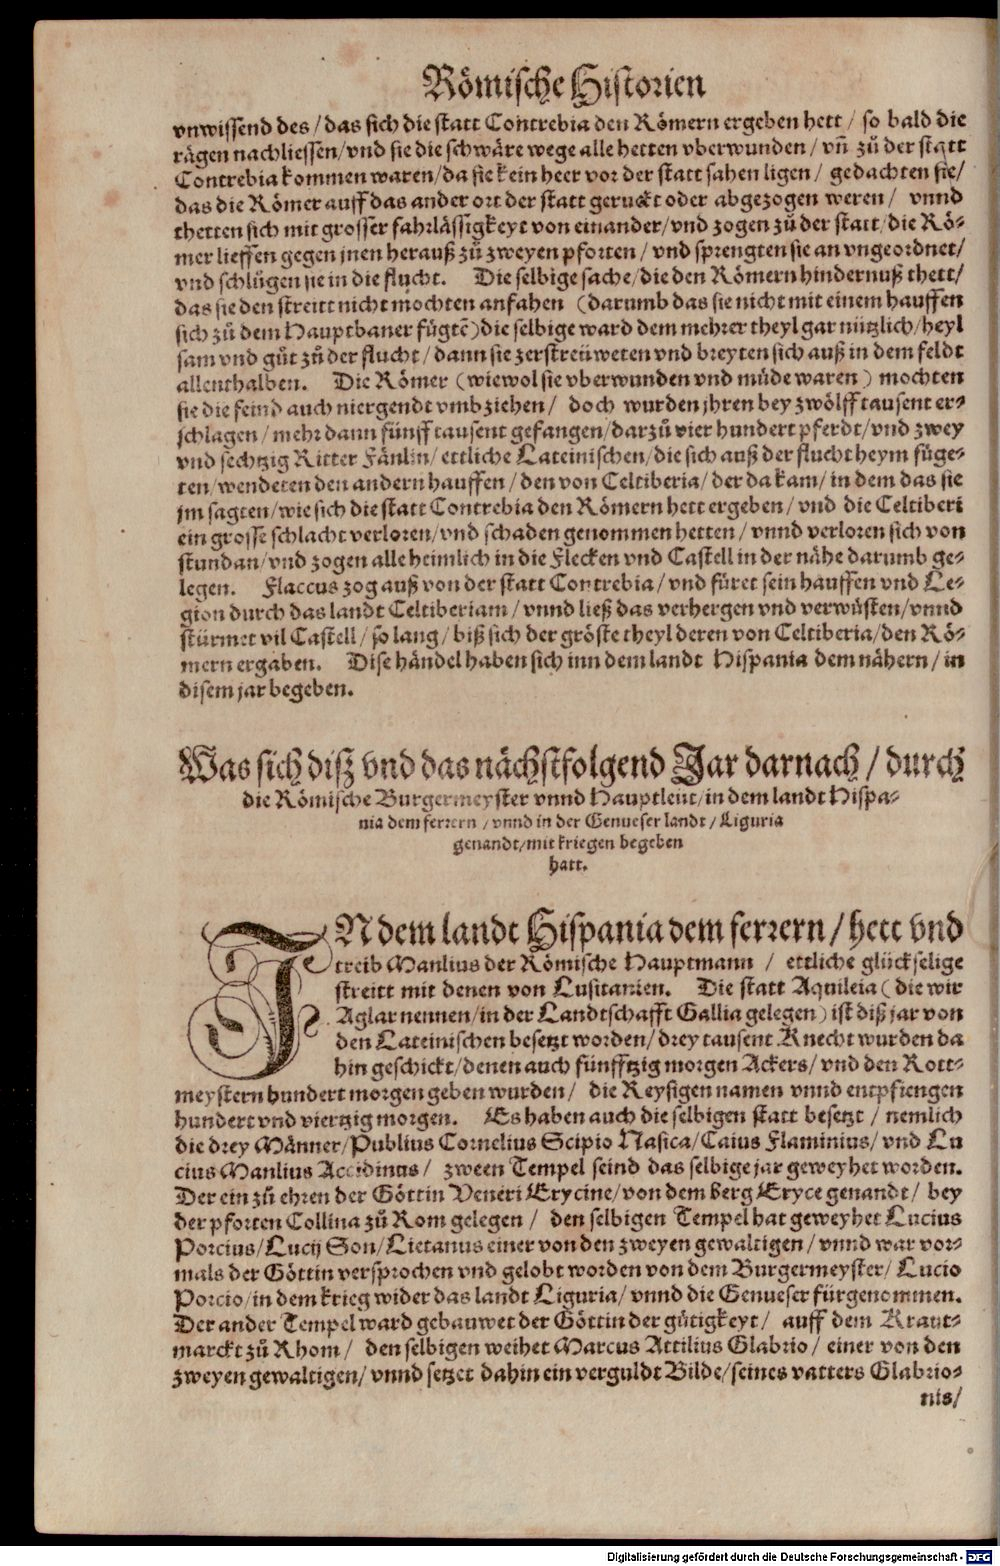 Römische Historien
vnwissend des / das sich die statt Contrebia den Römern ergeben hett / so bald die
rägen nachliessen / vnd sie die schwäre wege alle hetten vberwunden / vñ zů der statt
Contrebia kommen waren / da sie kein heer vor der statt sahen ligen / gedachten sie /
das die Römer auff das ander ort der statt geruckt oder abgezogen weren / vnnd
thetten sich mit grosser fahrlässigkeyt von einander / vnd zogen zů der statt / die Rö-
mer lieffen gegen jnen herauß zů zweyen pforten / vnd sprengten sie an vngeordnet /
vnd schlůgen sie in die flucht. Die selbige sache / die den Römern hindernuß thett /
das sie den streitt nicht mochten anfahen (darumb das sie nicht mit einem hauffen
sich zů dem Hauptbaner fůgtē) die selbige ward dem mehrer theyl gar nützlich / heyl
sam vnd gůt zů der flucht / dann sie zerstreüweten vnd breyten sich auß in dem feldt
allenthalben. Die Römer (wiewol sie vberwunden vnd müde waren) mochten
sie die feind auch niergendt vmbziehen / doch wurden jhren bey zwölff tausent er-
schlagen / mehr dann fünff tausent gefangen / darzů vier hundert pferdt / vnd zwey
vnd sechtzig Ritter Fänlin / ettliche Lateinischen / die sich auß der flucht heym füge-
ten / wendeten den andern hauffen / den von Celtiberia / der da kam / in dem das sie
jm sagten / wie sich die statt Contrebia den Römern hett ergeben / vnd die Celtiberi
ein grosse schlacht verloren / vnd schaden genommen hetten / vnnd verloren sich von
stundan / vnd zogen alle heimlich in die Flecken vnd Castell in der nähe darumb ge-
legen. Flaccus zog auß von der statt Contrebia / vnd füret sein hauffen vnd Le-
gion durch das landt Celtiberiam / vnnd ließ das verhergen vnd verwüsten / vnnd
stürmet vil Castell / so lang / biß sich der gröste theyl deren von Celtiberia / den Rö-
mern ergaben. Dise händel haben sich inn dem landt Hispania dem nähern / in
disem jar begeben.
Was sich diß vnd das nächstfolgend Jar darnach / durch
die Römische Burgermeyster vnnd Hauptleut / in dem landt Hispa-
nia dem ferrern / vnnd in der Genueser landt / Liguria
genandt / mit kriegen begeben
hatt.
IN dem landt Hispania dem ferrern / hett vnd
treib Manlius der Römische Hauptmann / ettliche glückselige
streitt mit denen von Lusitanien. Die statt Aquileia (die wir
Aglar nennen / in der Landtschafft Gallia gelegen) ist diß jar von
den Lateinischen besetzt worden / drey tausent Knecht wurden da
hin geschickt / denen auch fünfftzig morgen Ackers / vnd den Rott-
meystern hundert morgen geben wurden / die Reysigen namen vnnd entpfiengen
hundert vnd viertzig morgen. Es haben auch die selbigen statt besetzt / nemlich
die drey Männer / Publius Cornelius Scipio Nasica / Caius Flaminius / vnd Lu
cius Manlius Accidinus / zween Tempel seind das selbige jar geweyhet worden.
Der ein zů ehren der Göttin Veneri Erycine / von dem berg Eryce genandt / bey
der pforten Collina zů Rom gelegen / den selbigen Tempel hat geweyhet Lucius
Porcius / Lucij Son / Lictanus einer von den zweyen gewaltigen / vnnd war vor-
mals der Göttin versprochen vnd gelobt worden von dem Burgermeyster / Lucio
Porcio / in dem krieg wider das landt Liguria / vnnd die Genueser fürgenommen.
Der ander Tempel ward gebauwet der Göttin der gütigkeyt / auff dem Kraut-
marckt zů Rhom / den selbigen weihet Marcus Attilius Glabrio / einer von den
zweyen gewaltigen / vnnd setzet dahin ein verguldt Bilde / seines vatters Glabrio-
nis /
Digitalisierung gefördert durch die Deutsche Forschungsgemeinschaft - DFG